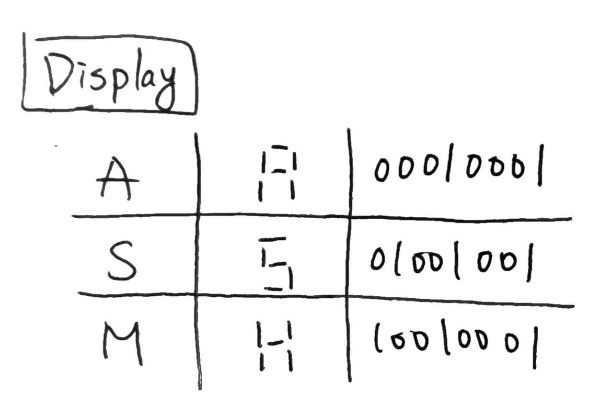 Display
A 00010001
S 01001001
M 10010001